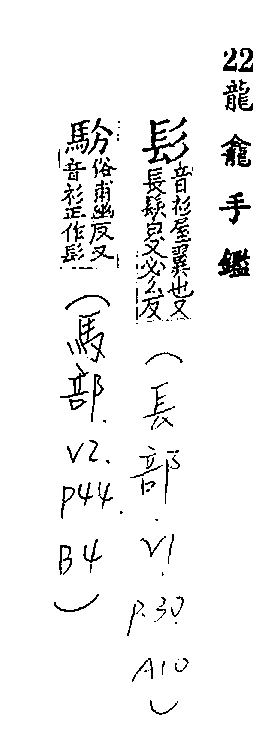 22龍龕手鑑
髟音衫屋翼也又
長髮皃又必幺反
(長部. V1.
P.30.
A10)
俗甫幽反又
音衫正作髟
(馬部.
V2.
P44.
B4)